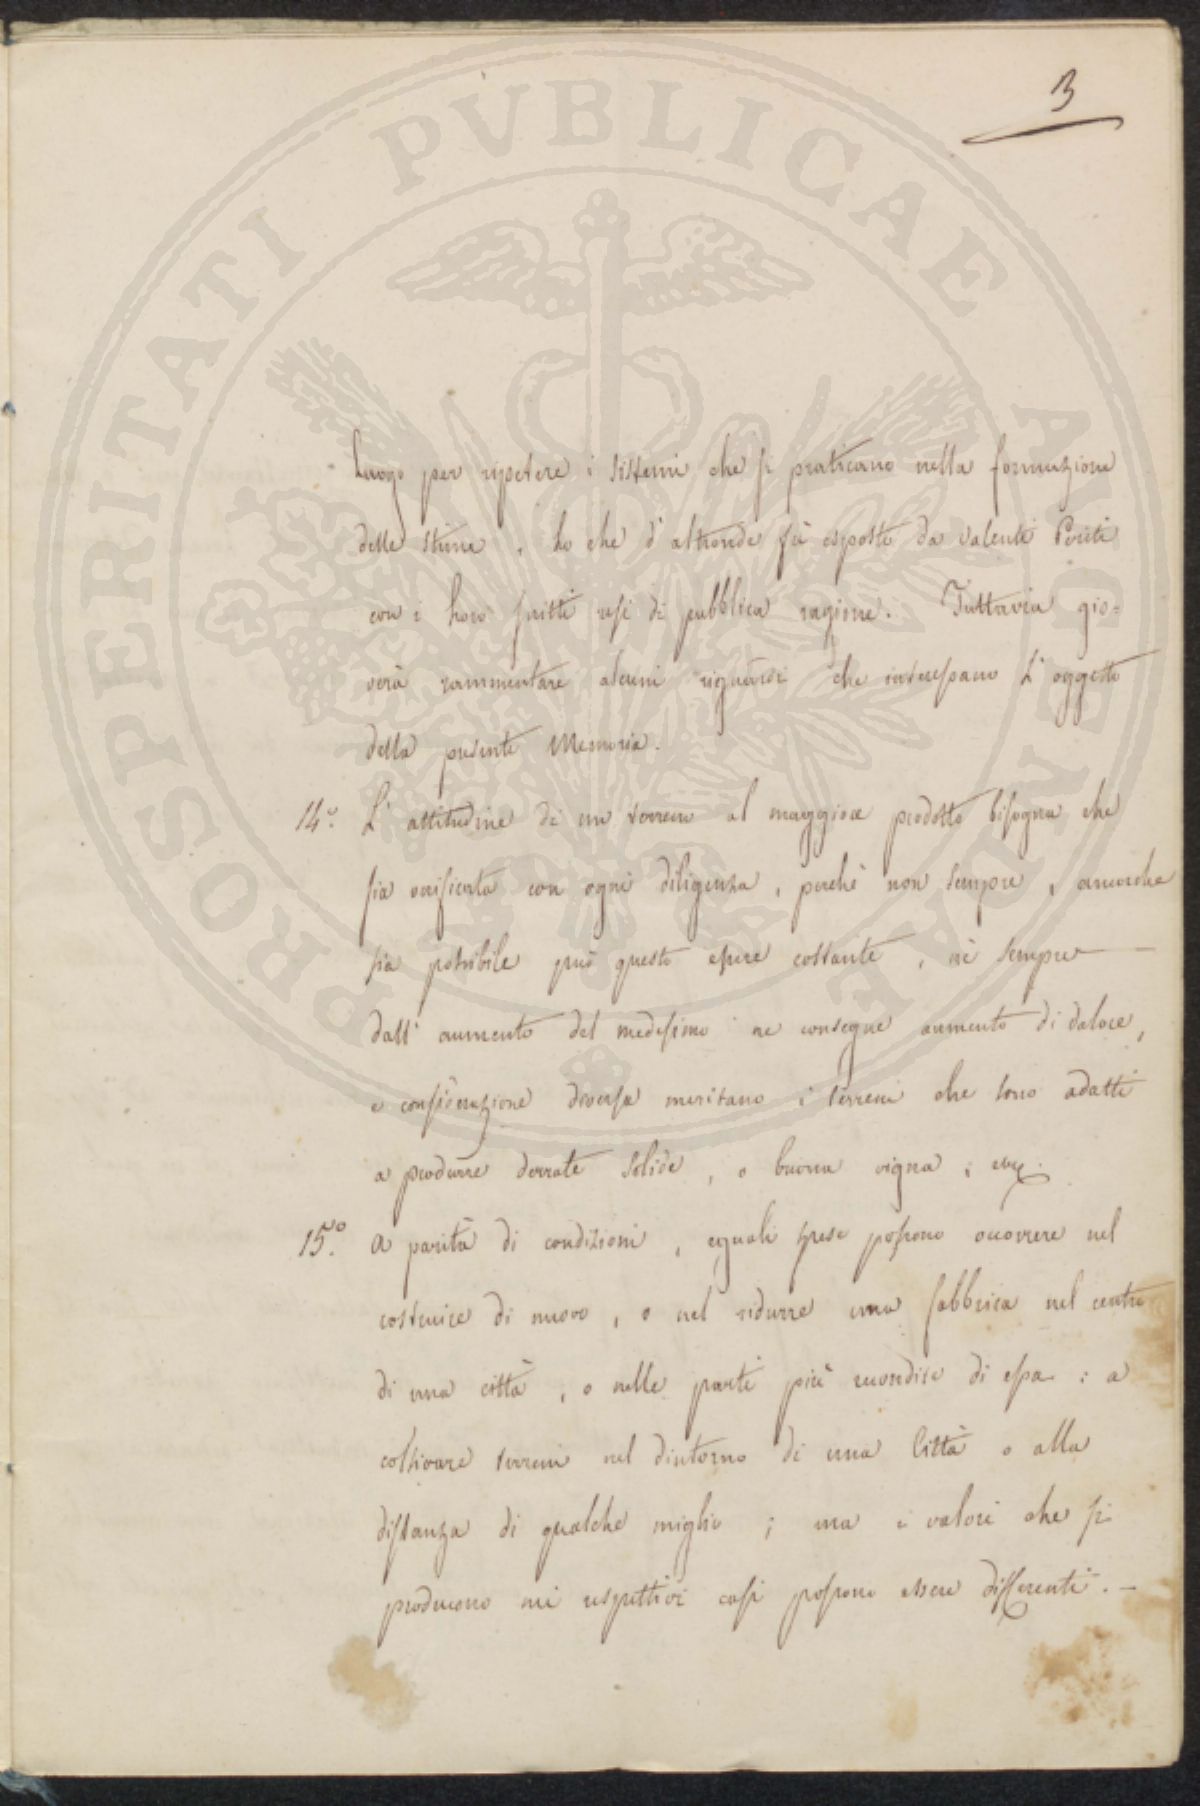 3
PROSPERITATI PVBLICAE AVGENDAE
luogo per ripetere i sistemi che si praticano nella formazione
delle stime, lo che d'altronde fù esposto da valenti Periti
con i loro scritti resi di pubblica ragione. Tuttavia gio=
verà rammentare alcuni riguardi che interessano l'oggetto
della presente Memoria.
14.° L'attitudine di un terreno al maggior prodotto bisogna che
sia verificata con ogni diligenza, perchè non sempre, ancorche
sia può questo essere costante, nè sempre —
dall'aumento del medesimo ne consegue aumento di valore,
e considerazione diversa meritano i terreni che sono adatti
a produrre derrate solide, o buona vigna;
15.° A parità di condizioni, eguali spese possono occorrere nel
costruire di nuovo, o nel ridurre una fabbrica nel centro
di una città, o nelle parti più recondite di essa: a
coltivare terreni nel dintorno di una Città o alla
distanza di qualche miglio; ma i valori che si
producono nei respettivi casi possono essere differenti. —